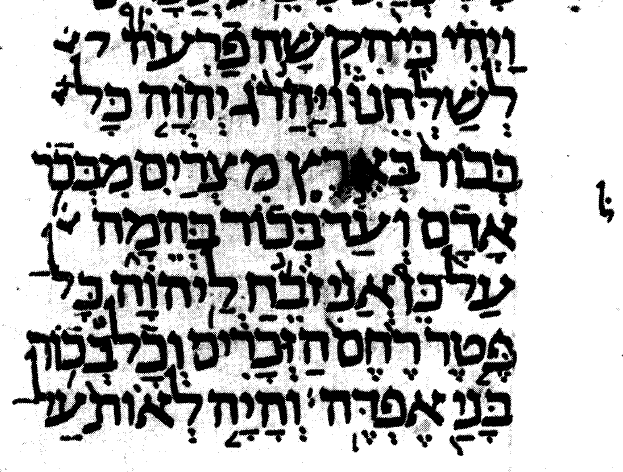 וַיְהִי כִּי הִקְשָׁה פַרְעֹה
לְשַׁלְּחֵנוּ וַיַּהֲרֹג יְהוָה כָּל
בְּכוֹר בְּאֶרֶץ מִצְרַיִם מִבְּכֹר
אָדָם וְעַד בְּכוֹר בְּהֵמָה
עַל כֵּן אֲנִי זֹבֵחַ לַיהוָה כָּל
פֶּטֶר רֶחֶם הַזְּכָרִים וְכָל בְּכוֹר
בָּנַי אֶפְדֶּה וְהָיָה לְאוֹת עַל